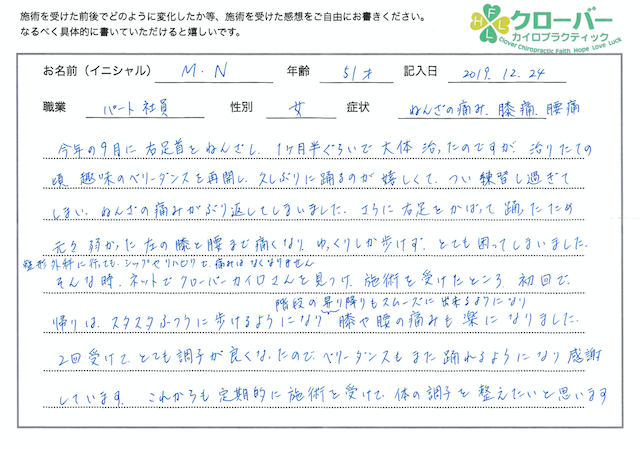 施術を受けた前後でどのように変化したか等、施術を受けた感想をご自由にお書きください。
なるべく具体的に書いていただけると嬉しいです。
HFLL
クローバー
カイロプラクティック
Clover Chiropractic Faith Hope Love Luck
お名前（イニシャル） M・N 年齢 51才 記入日 2019. 12. 24
職業 パート社員 性別 女 症状 ねんざの痛み、膝痛、腰痛
今年の9月に右足首をねんざし、1ヶ月半ぐらいで大体治ったのですが、治りたての
頃 趣味のベリーダンスを再開し、久しぶりに踊るのが嬉しくて、つい練習し過ぎて
しまい、ねんざの痛みがぶり返してしまいました。さらに右足をかばって踊ったため
元々弱かった左の膝と腰まで痛くなり、ゆっくりしか歩けず、とても困ってしまいました。
整形外科に行っても、シップやリハビリで、痛みはなくなりません
そんな時、ネットでクローバーカイロさんを見つけ、施術を受けたところ、初回で、
階段の昇り降りもスムーズに出来るようになり
帰りは、スタスタふつうに歩けるようになり 膝や腰の痛みも楽になりました。
2回受けて、とても調子が良くなったので、ベリーダンスもまた踊れるようになり感謝
しています。これからも定期的に施術を受けて、体の調子を整えたいと思います